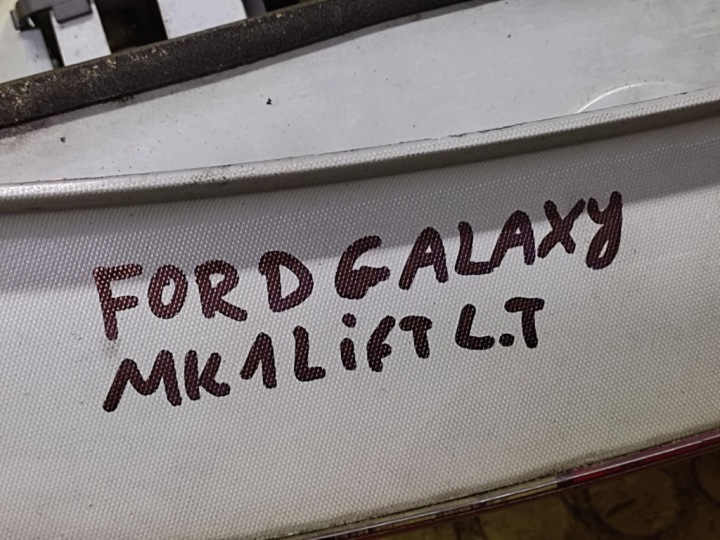 FORD GALAXY
MK1 LiFT L.T